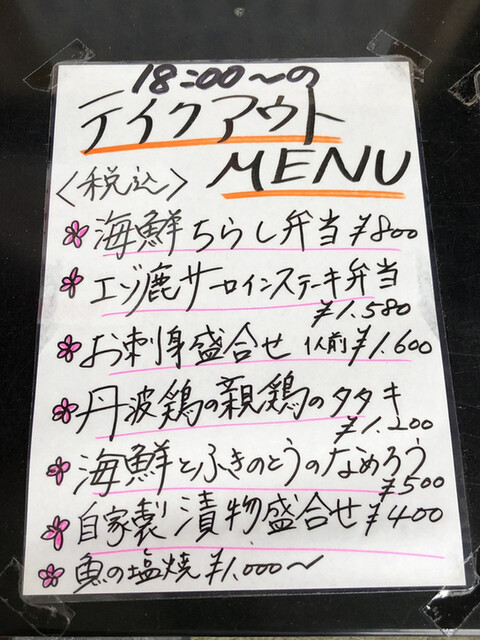 18:00〜の
テイクアウト
MENU
〈税込〉
海鮮ちらし弁当 ¥800
エゾ鹿サーロインステーキ弁当
¥1.580
お刺身盛合せ 1人前 ¥1.600
丹波鶏の親鶏のタタキ
¥1.200
海鮮とふきのとうのなめろう
¥500
自家製漬物盛合せ ¥400
魚の塩焼 ¥1.000〜